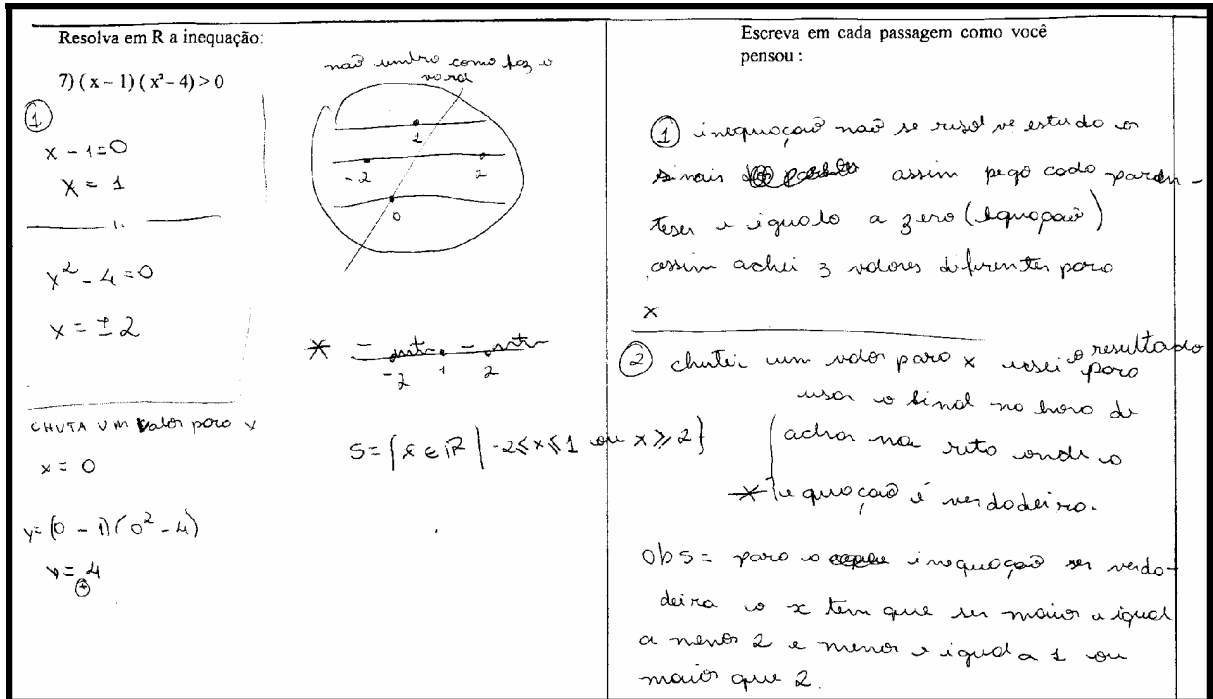 Resolva em R a inequação:
7) ( x – 1) ( x² – 4) > 0
①
x - 1 = 0
x = 1
x² - 4 = 0
x = ± 2
CHUTA UM valor para x
x = 0
y = (0 - 1)(0² - 4)
y = 4
⊕
não lembro como faz o
1
-2 2
0
* -2 1 2
S = {x ∈ R | -2 ≤ x ≤ 1 ou x ≥ 2}
Escreva em cada passagem como você
pensou :
① inequação não se resolve estudo os
sinais assim pego cada paren-
teses e igualo a zero (equação)
assim achei 3 valores diferentes para
x
② chutei um valor para x usei o resultado
para
usar o sinal na hora de
achar na reta onde a
* equação é verdadeira.
obs = para a inequação ser verda-
deira o x tem que ser maior e igual
a menos 2 e menor e igual a 1 ou
maior que 2.